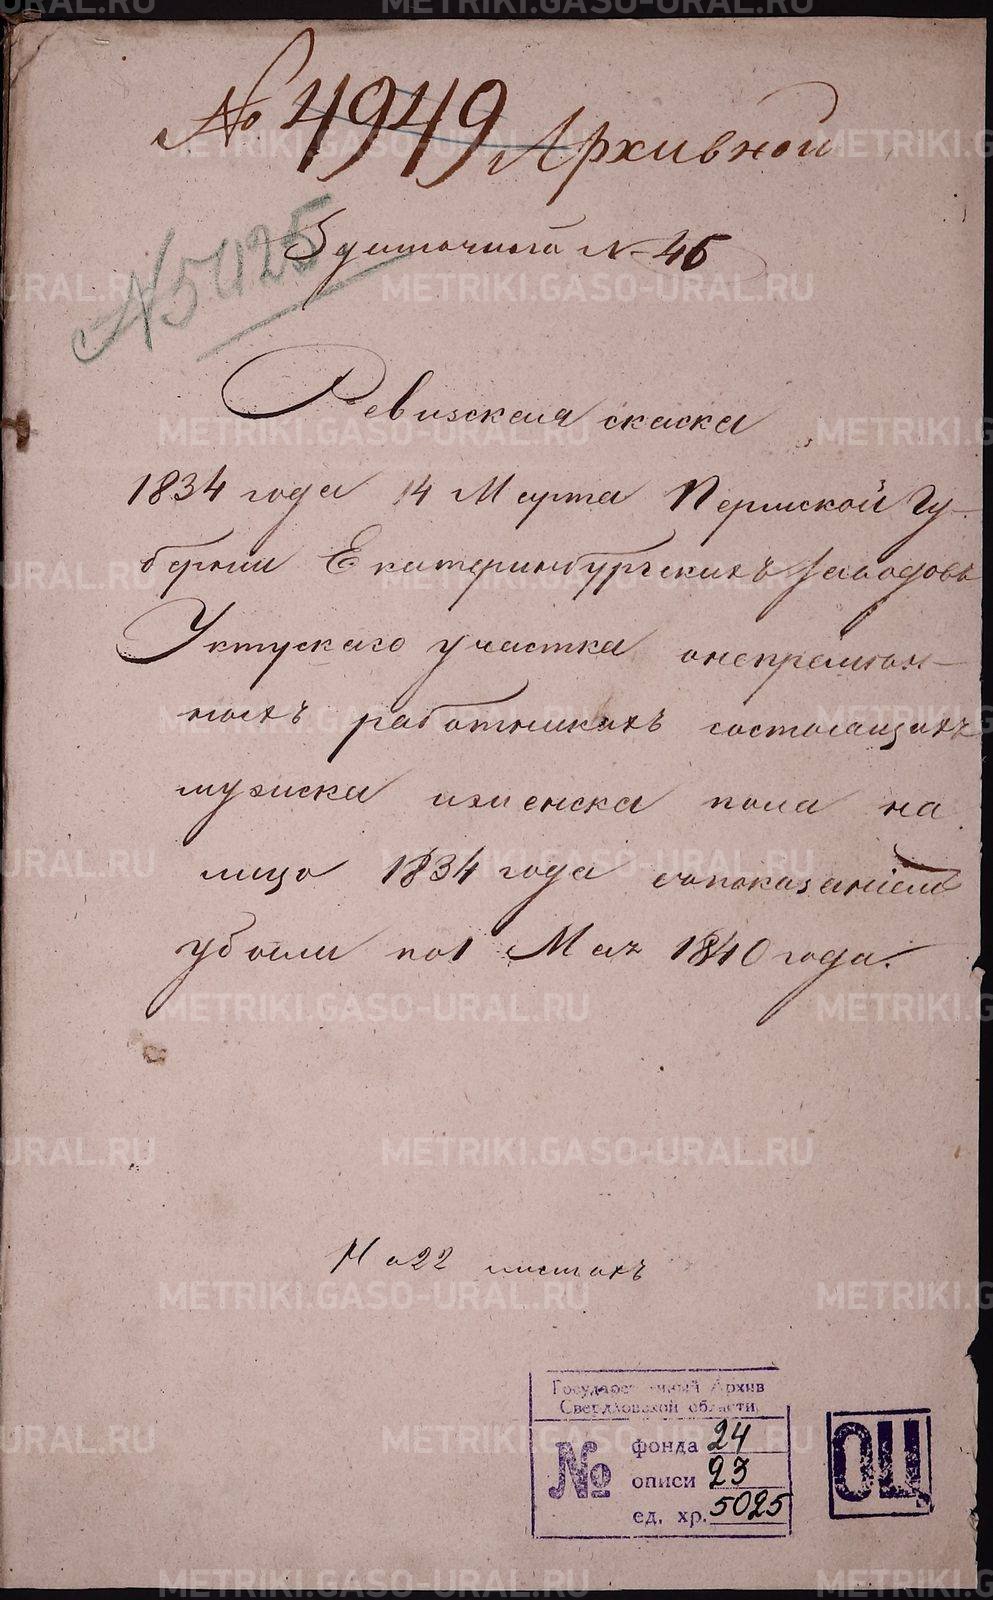 № 4949 Архивной
№5025
№ 46
Ревизская скаска
1834 года 14 Марта Пермской Гу-
бернии Екатеринбургскихъ заводовъ
Уктускаго участка онепремен-
ныхъ работникахъ состоящихъ
мужиска иженска пола на
лицо 1834 года сопоказаніем
убыли по 1 Мая 1840 года.
На 22 листахъ
Государственный Архив
Свердловской области
№
фонда 24
описи 23
ед. хр. 5025
ОЦ
METRIKI.GASO-URAL.RU